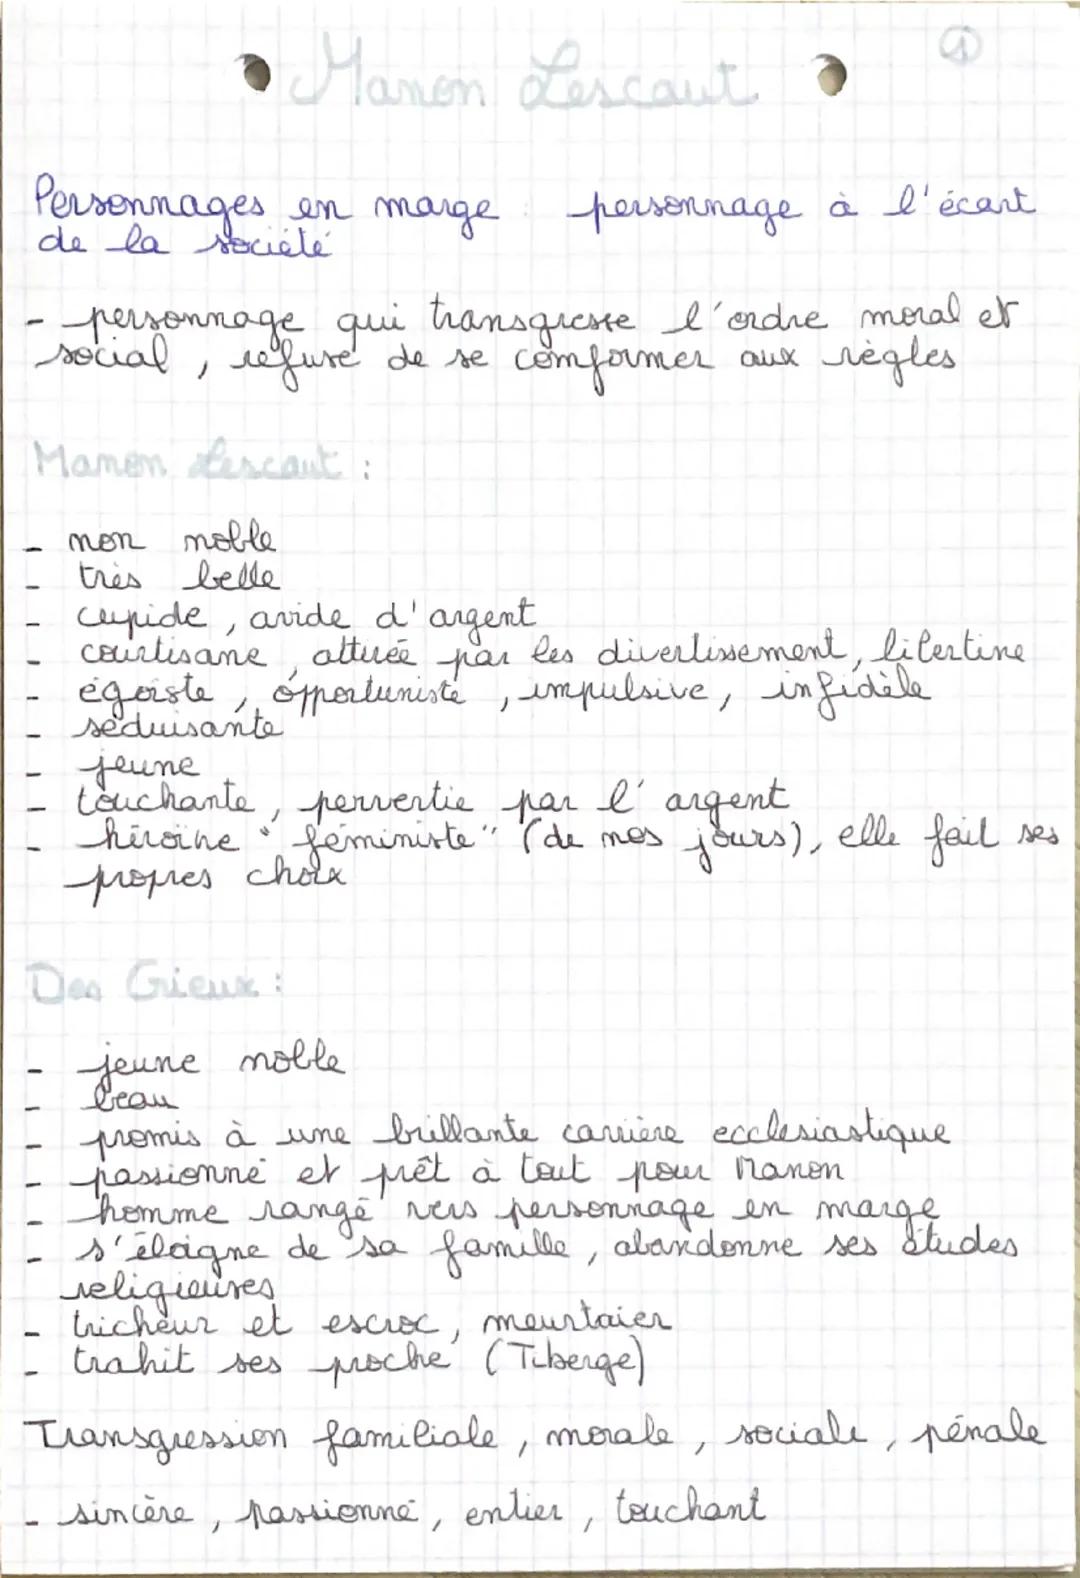 ①
Manon Lescaut
Personnages en marge : personnage à l'écart
de la société
- personnage qui transgresse l'ordre moral et
social, refuse de se comformer aux règles
Manon Lescaut :
- non noble
- très belle
- cupide, avide d'argent
- courtisane, attirée par les divertissement, libertine
- égoïste, opportuniste, impulsive, infidèle
- séduisante
- jeune
- touchante, pervertie par l'argent
- héroïne "féministe" (de nos jours), elle fait ses
propres choix
Des Grieux :
- jeune noble
- beau
- promis à une brillante carrière ecclesiastique
- passionné et prêt à tout pour Manon
- homme rangé vers personnage en marge
- s'éloigne de sa famille, abandonne ses études
religieuses
- tricheur et escroc, meurtaier
- trahit ses proche (Tiberge)
Transgression familiale, morale, sociale, pénale
- sincère, passionné, entier, touchant